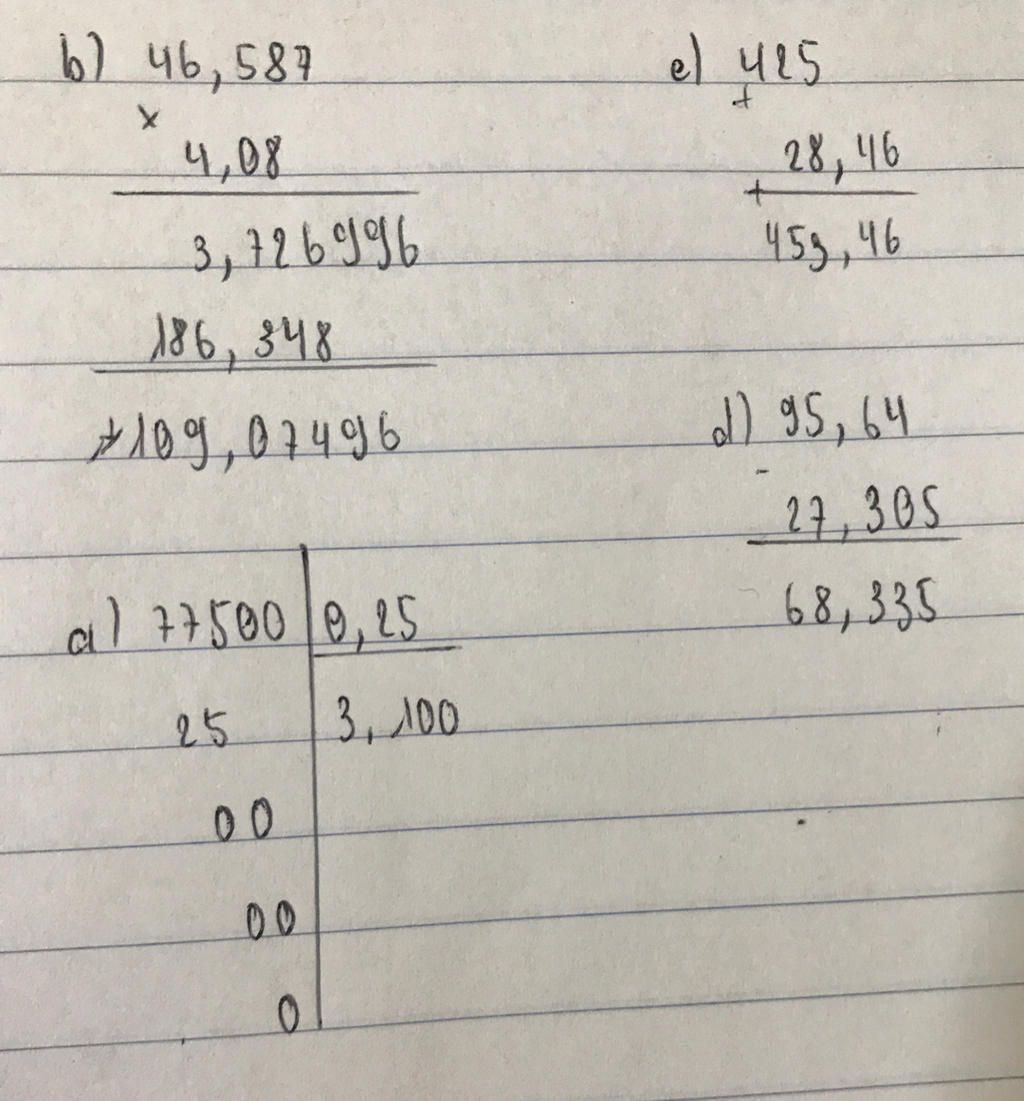 b) 46,587
×
4,08
3,726996
186,348
+109,07496
e) 425
+
28,46
+
453,46
d) 95,64
-
27,305
68,335
a) 77500 0,25
25 3,100
00
00
0